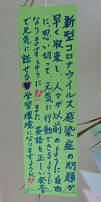 新型コロナウイルス感染症の問題が
早く収束し、人々が以前のよう
に、思い切って、元気に行動できるように
なりますように!! また、英語を正しい発音
で元気に話せる♥学習環境になりますように!!